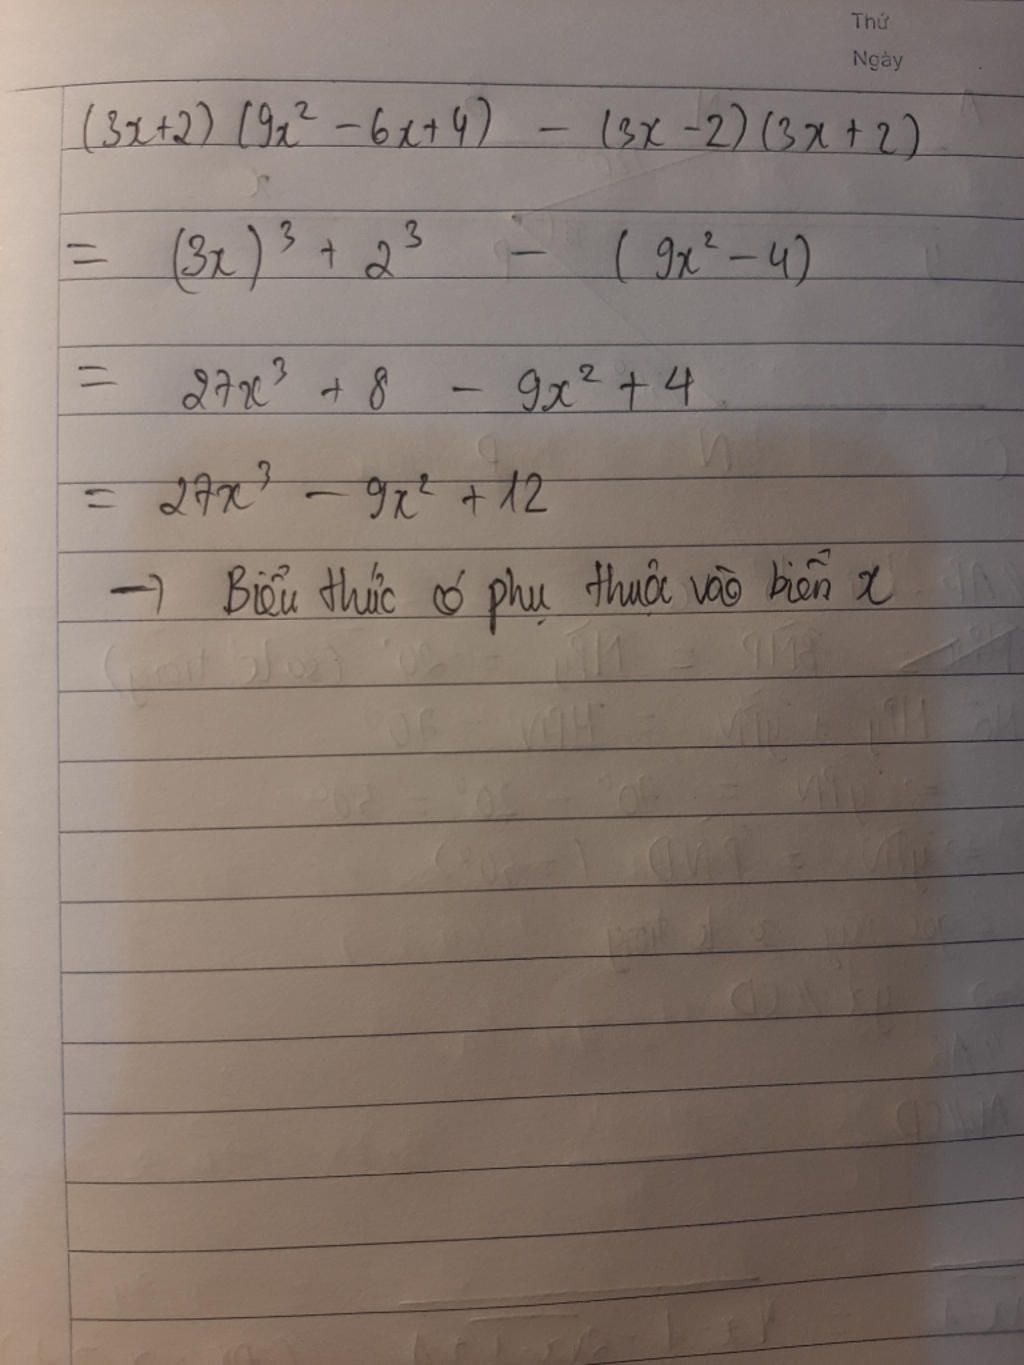 Thứ
Ngày
(3x+2) (9x² - 6x+4) - (3x - 2) (3x + 2)
= (3x)³ + 2³ - ( 9x² - 4)
= 27x³ + 8 - 9x² + 4
= 27x³ - 9x² + 12
→ Biểu thức có phụ thuộc vào biến x